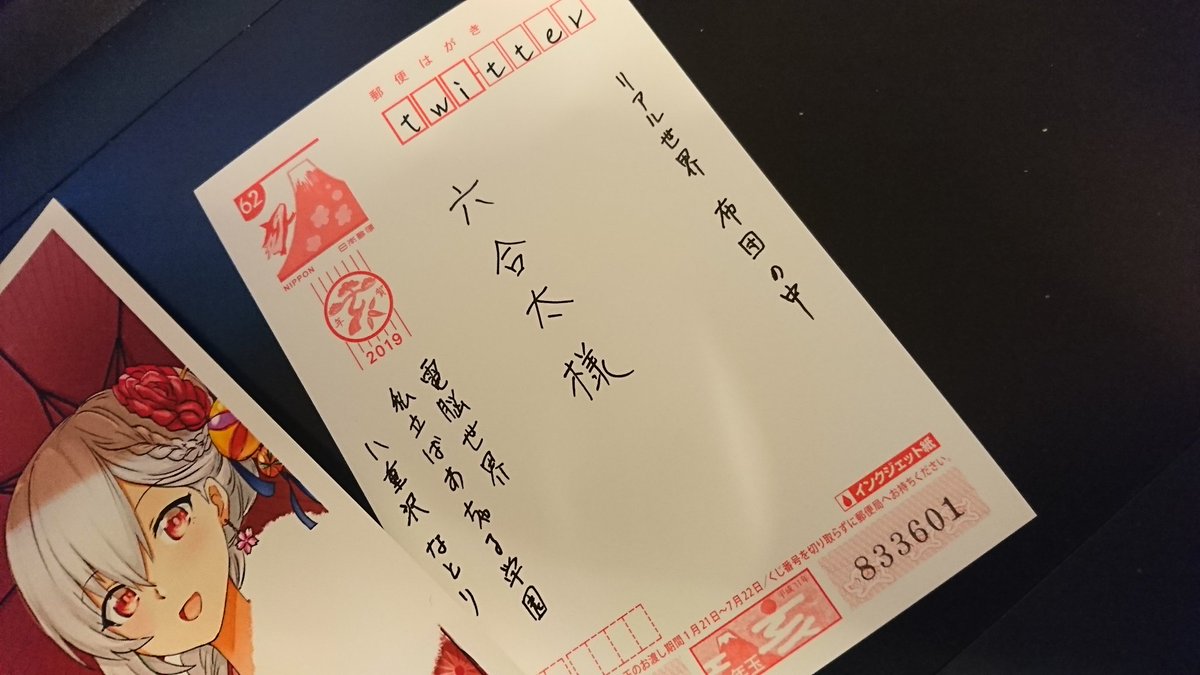 郵便はがき
twitter
リアル世界 布団の中
六合太 様
62
日本郵便
NIPPON
年賀
2019
電脳世界
私立ばあちゃる学園
八重沢 なとり
インクジェット紙
833601
のお渡し期間 1月21日~7月22日/くじ番号を切り取らずに郵便局へお持ちください。
年玉